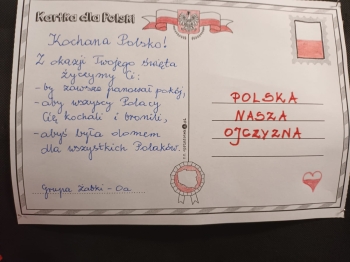 Kartka dla Polski
Kochana Polsko!
Z okazji Twojego święta
życzymy Ci:
- by zawsze panował pokój,
- aby wszyscy Polacy
Cię kochali i bronili,
- abyś była domem
dla wszystkich Polaków.
Grupa Żabki - 0a
POLSKA
NASZA
OJCZYZNA